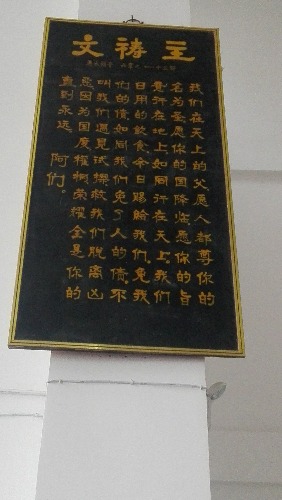 主祷文
我们在天上的父愿人都尊你的
名为圣愿你的国降临愿你的旨
意行在地上如同行在天上.我们
日用的饮食今日赐给我们.免我
们的债如同我们免了人的债.不
叫我们遇见试探救我们脱离凶
恶因为国度权柄荣耀全是你的
直到永远 阿们。